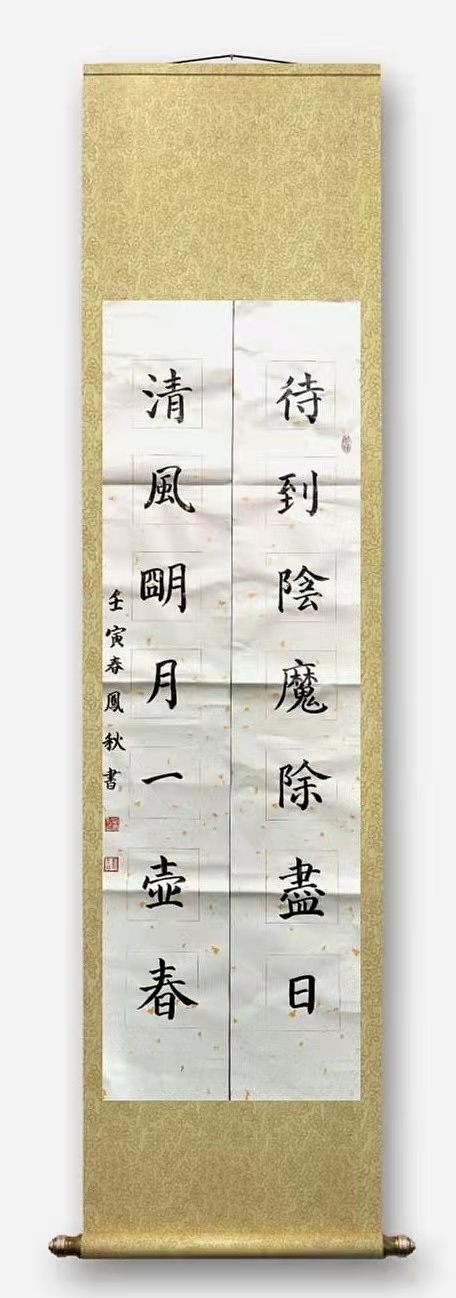 待到陰魔除盡日
清風朙月一壺春
壬寅春鳳秋書